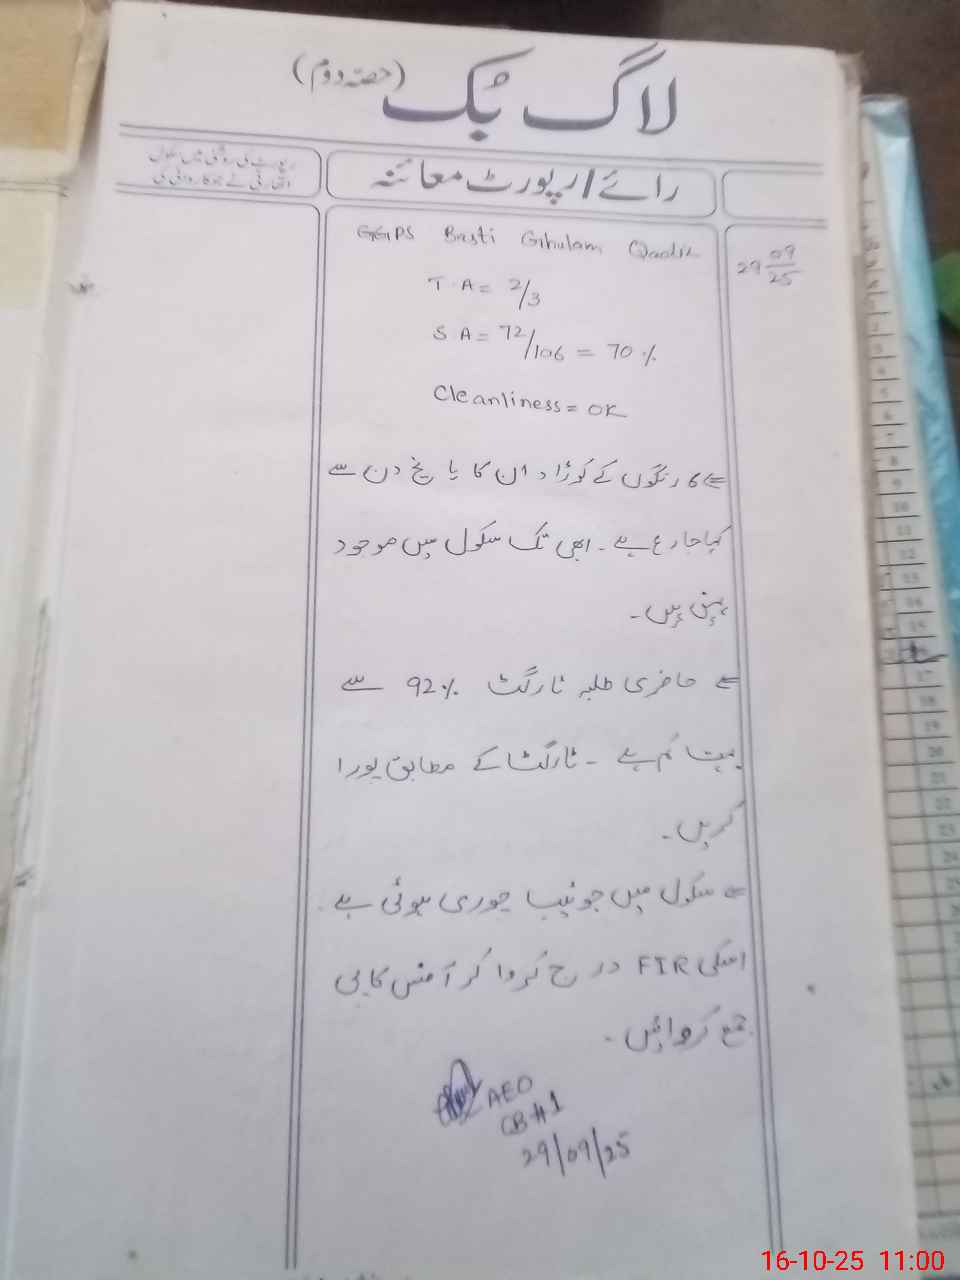 لاگ بک (حصہ دوم)
رائے / رپورٹ معائنہ
رپورٹ کی روشنی میں سکول
اتھارٹی نے جو کاروائی کی
GGPS Basti Ghulam Qadir
29 09/25
T.A = 2/3
S.A = 72/106 = 70 %
Cleanliness = OK
6 رنگوں کے کوڑا دان کا پانچ دن سے
کہا جا رہا ہے ۔ ابھی تک سکول میں موجود
نہیں ہیں ۔
حاضری طلبہ ٹارگٹ 92% سے
بہت کم ہے ۔ ٹارگٹ کے مطابق پورا
کریں ۔
سکول میں جو ٹیب چوری ہوئی ہے ۔
اسکی FIR درج کروا کر آفس کاپی
جمع کروائیں ۔
AEO
CB#1
29/09/25
16-10-25 11:00